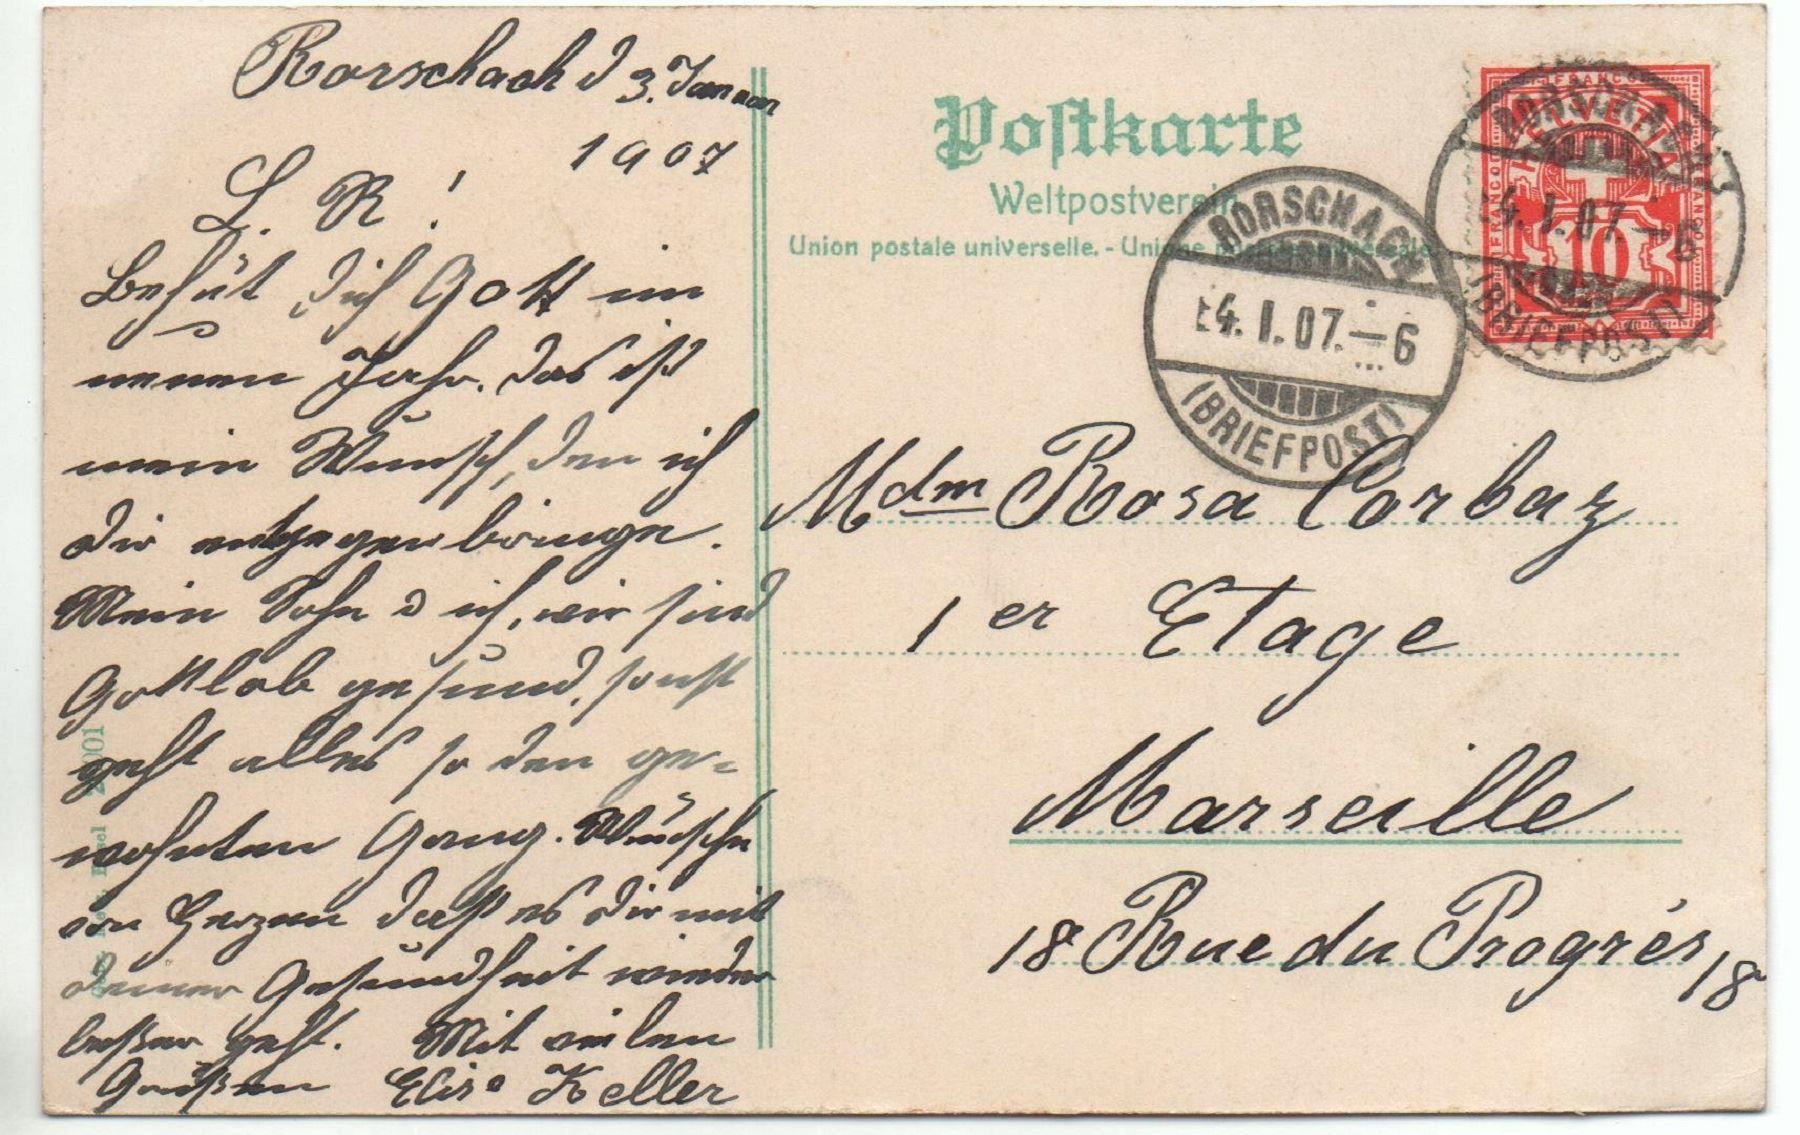 Rorschach d 3. Januar
1907
L. R!
Behüt dich Gott im
neuen Jahr. das ist
mein Wunsch, den ich
dir entgegenbringe.
Mein Sohn & ich, wir sind
Gottlob gesund, sonst
geht alles so den ge-
wohnten Gang. Wünsche
von Herzen dass es dir mit
deiner Gesundheit wieder
besser geht. Mit vielen
Grüßen Elise Keller
Postkarte
Weltpostverein
Union postale universelle. - Unione postale universale
RORSCHACH
-4.I.07.-6
(BRIEFPOST)
FRANCO
HELVETIA
10
RORSCHACH
-4.I.07.-6
(BRIEFPOST)
Mdm Rosa Corbaz
1 er Etage
Marseille
18 Rue du Progrés 18